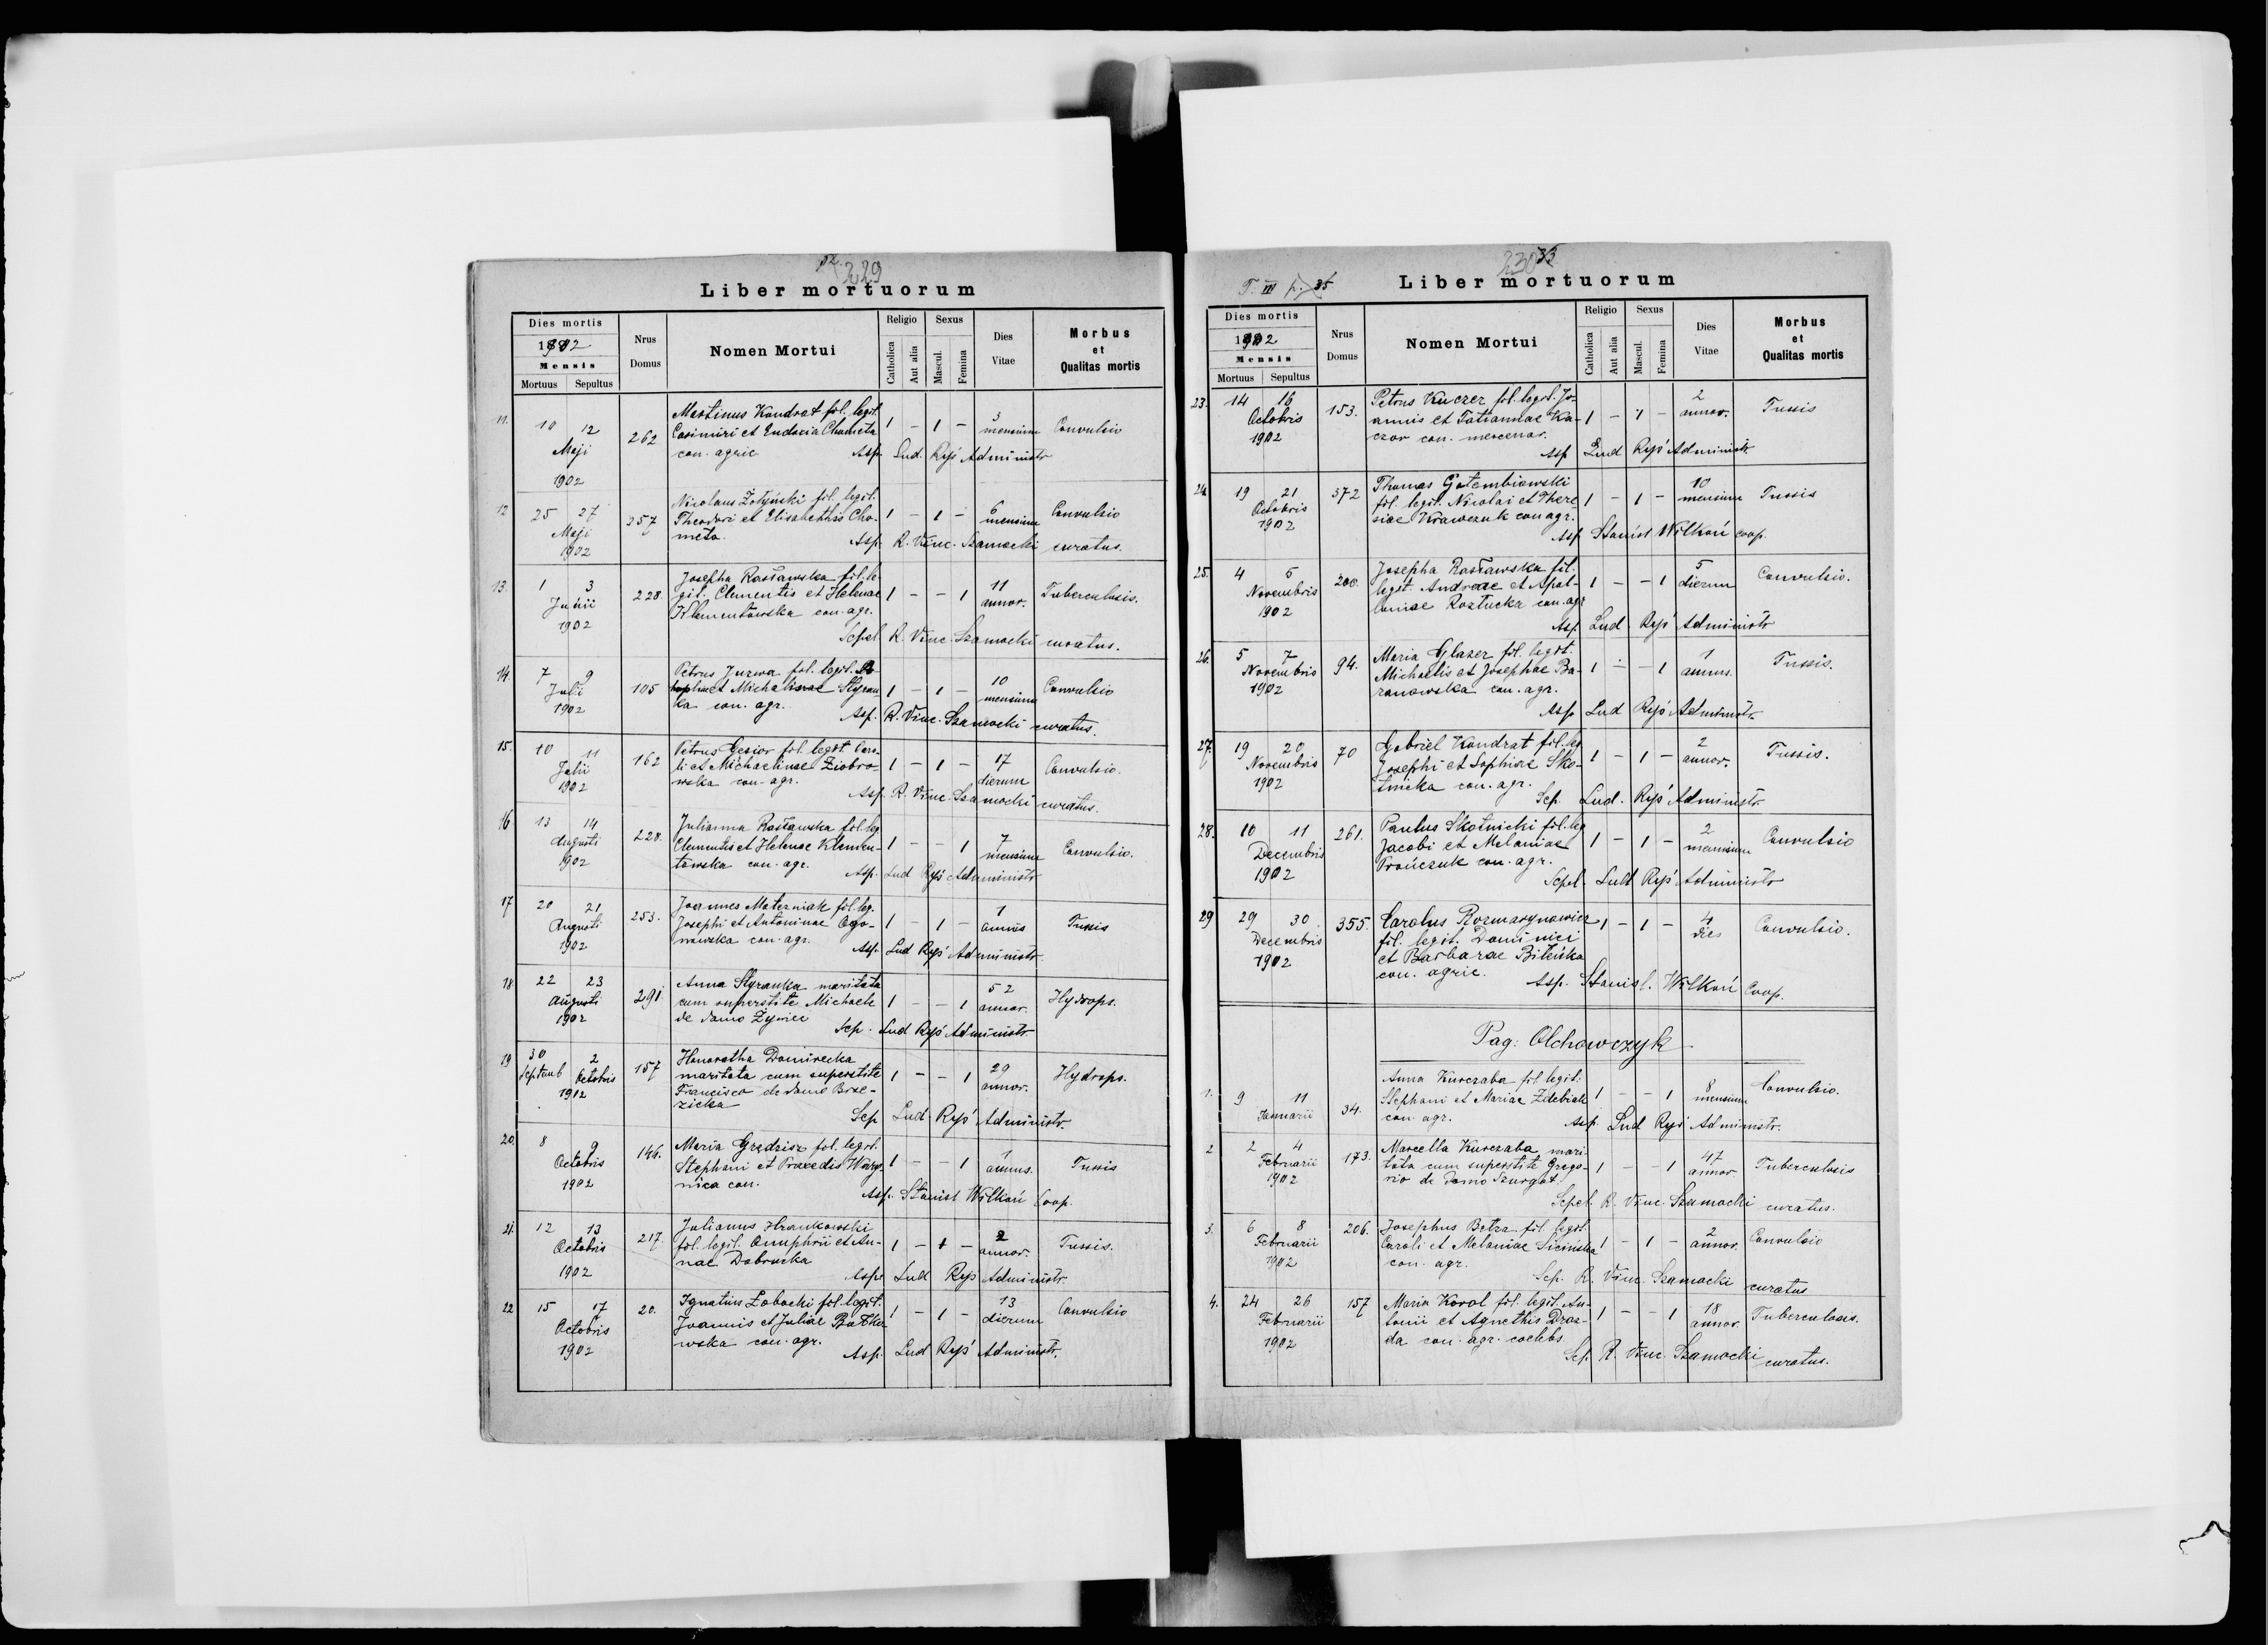 229
Liber mortuorum
Dies mortis
1902
Mensis
Mortuus Sepultus
Nrus Domus
Nomen Mortui
Religio
Catholica
Aut alia
Sexus
Mascul.
Femina
Dies Vitae
Morbus et Qualitas mortis
11. 10 12 262 Martinus Kondrat fil. legit. 1 - 1 - 3 mensium Convulsio
Maji Casimiri et Eudoxia Chometa
1902 con. agric Asp. Lud. Ryś Administr
12 25 27 257 Nicolaus Żołyński fil. legit. 1 - 1 - 6 mensium Convulsio
Maji Theodori et Elisabethis Cho-
1902 meta. Asp. R. Vinc. Szamocki curatus.
13. 1 3 228 Josepha Rasławska fil. le- 1 - - 1 11 annor. Tuberculosis.
Junii git. Clementis et Helenae
1902 Klementowska con. agr.
Sepel R. Vinc. Szamocki curatus.
14. 7 9 105 Petrus Jurwa fil. legit. 1 - 1 - 10 mensium Convulsio
Juli et Michalinae Styran
1902 ka con. agr. Asp. R. Vinc. Szamocki curatus.
15. 10 11 162 Petrus Gesior fil. legit. Caro- 1 - 1 - 17 dierum Convulsio.
Julii li et Michaelinae Ziobro-
1902 wska con. agr. Asp. R. Vinc. Szamocki curatus.
16 13 14 228. Julianna Rasławska fil. leg 1 - - 1 7 mensium Convulsio.
Augusti Clementis et Helenae Klemen-
1902 towska con. agr. Asp. Lud Ryś Administr
17 20 21 253. Joannes Materniak fil. leg. 1 - 1 - 1 annis Tussis
Augusti Josephi et Antoninae Ogo-
1902 nowska con. agr. Asp. Lud Ryś Administr.
18 22 23 291 Anna Styranka maritata 1 - - 1 52 annor. Hydrops.
Augusti cum superstite Michaele
1902 de domo Żywiec Sep. Lud Ryś Administr
19 30 2 157 Honoratha Domirecka 1 - - 1 29 annor. Hydrops.
Septemb Octobris maritata cum superstite
1902 Francisco de domo Brze-
zicka Sep Lud Ryś Administr.
20. 8 9 146. Maria Grędzisz fil. legit. 1 - - 1 1 annus. Tussis
Octobris Stephani et Praxedis
1902 nica con. Asp. Stanisl Wilkoń Coop.
21. 12 13 217. Julianus Hrankowski 1 - 1 - 2 annor. Tussis.
Octobris fil. legit. Onuphrii et An-
1902 nae Dobrucka Asp. Lud Ryś Administr.
22 15 17 20. Ignatius Łobocki fil. legit. 1 - 1 - 13 dierum Convulsio
Octobris Joannis et Juliae
1902 wska con. agr. Asp. Lud Ryś Administr.
230 33
T. III p. 35
Liber mortuorum
Dies mortis
1902
Mensis
Mortuus Sepultus
Nrus Domus
Nomen Mortui
Religio
Catholica
Aut alia
Sexus
Mascul.
Femina
Dies Vitae
Morbus et Qualitas mortis
23. 14 16 153. Petrus Kuczer fil. legit. Jo- 1 - 1 - 2 annor. Tussis
Octobris annis et Tatiannae Ka-
1902 czor con. mercenar.
Asp Lud Ryś Administr.
24. 19 21 372 Thomas Gołembiowski 1 - 1 - 10 mensium Tussis
Octobris fil. legit. Nicolai et There
1902 siae Krawczuk con agr.
Asp Stanisl Wilkoń coop.
25. 4 5 200. Josepha Rasławska fil. 1 - - 1 5 dierum Convulsio.
Novembris legit. Andreae et Apol-
1902 loniae Roztucka con. agr
Asp. Lud Ryś Administr
26. 5 7 94. Maria Glazer fil. legit. 1 - - 1 1 annus. Tussis.
Novembris Michaelis et Josephae Ba-
1902 ranowska con. agr.
Asp Lud Ryś Administr.
27. 19 20 70 Gabriel Kondrat fil. leg 1 - 1 - 2 annor. Tussis.
Novembris Josephi et Sophiae Sko-
1902 tnicka con. agr. Sep. Lud. Ryś Administr
28. 10 11 261. Paulus Skotnicki fil. leg 1 - 1 - 2 mensium Convulsio
Decembris Jacobi et Melaniae
1902 Prończuk con. agr.
Sepel. Lud Ryś Administr
29 29 30 355. Carolus Rozmarynowicz 1 - 1 - 4 dies Convulsio.
Decembris fil. legit. Dominici
1902 et Barbarae Bileńska
con. agric. Asp. Stanisl. Wilkoń Coop.
Pag: Olchowczyk
1. 9 11 34. Anna Kurczaba fil legit. 1 - - 1 8 mensium Convulsio.
Januarii Stephani et Mariae Zdebiak
con. agr. Asp. Lud Ryś Administr.
2 2 4 173. Marcella Kurczaba mari- 1 - - 1 47 annor Tuberculosis
Februarii tata cum superstite Grego-
1902 rio de domo Szurgot.
Sepel. R. Vinc. Szamocki curatus.
3. 6 8 206. Josephus Betza fil. legit. 1 - 1 - 2 annor. Convulsio
Februarii Caroli et Melaniae Sicińska
1902 con. agr. Sep. R. Vinc. Szamocki curatus
4. 24 26 157 Maria Korol fil. legit. An- 1 - - 1 18 annor. Tuberculosis.
Februarii tonii et Agnethis Droz-
1902 da con. agr. coelebs.
Sep. R. Vinc. Szamocki curatus.